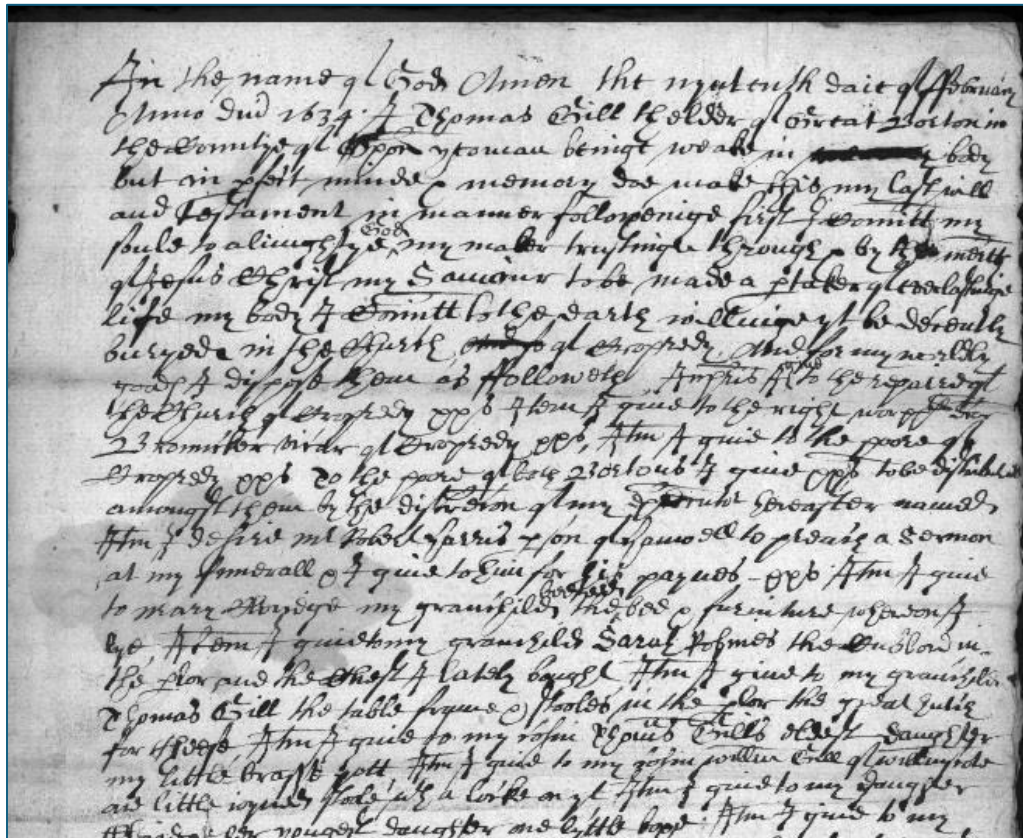 In the name of God Amen the nyntenth daie of ffebruary
Anno dni 1634 I Thomas Gill thelder of Great Borton in
the Countye of Oxon yeoman beinge weake in body
but in pfect minde & memory doe make this my last will
and Testament in manner followeinge first I Comitt my
soule to allmightye God my maker trustinge through & by the meritts
of Jesus Christ my Saviour to be made a ptaker of everlastinge
life my body I Comitt to the earth willinge yt be decently
buryed in the Church of Cropredy. And for my worldly
goods I dispose them as ffolloweth Inpris I give to the repaire of
the Church of Cropredy xxs Item I give to the right
vicar of Cropredy xxs, Itm I give to the poore of
Cropredy xxs To the poore of both Bortons I give xxs to be distributed
amongst them by the discretion of my Executor hereafter named
Itm I desire mr Robert Harris pson of Hanwell to preach a Sermon
at my funerall & I give to him for his paynes - xxs Itm I give
to mary my granchild the bedsteed bed & furniture whereon I
lye Item I give to my granchild Sarah Holmes the Cubbord in
the plor and the Chest I lately bought Itm I give to my granchild
Thomas Gill the table frame & stooles in the plor the great hutch
for cheese Itm I give to my cosin Thomas Gills eldest daughter
my little brasse pott Itm I give to my cosin willm Gill of
one little stole wth a locke on yt Itm I give to my daughter
her yongest daughter one lyttle boxe Itm I give to my